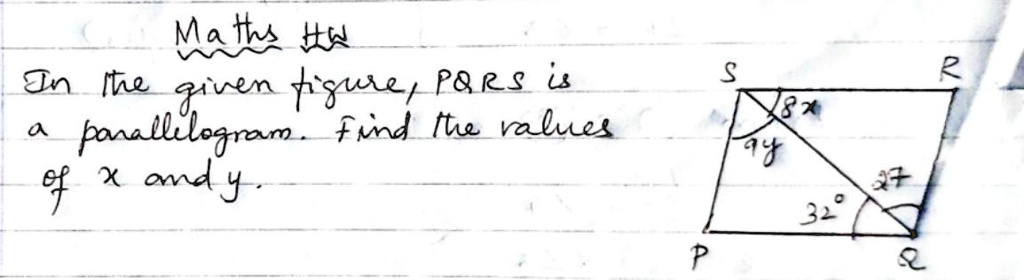 Maths HW
In the given figure, PQRS is
a parallelogram. Find the values
of x and y.
S R
8x
9y
27
32°
P Q